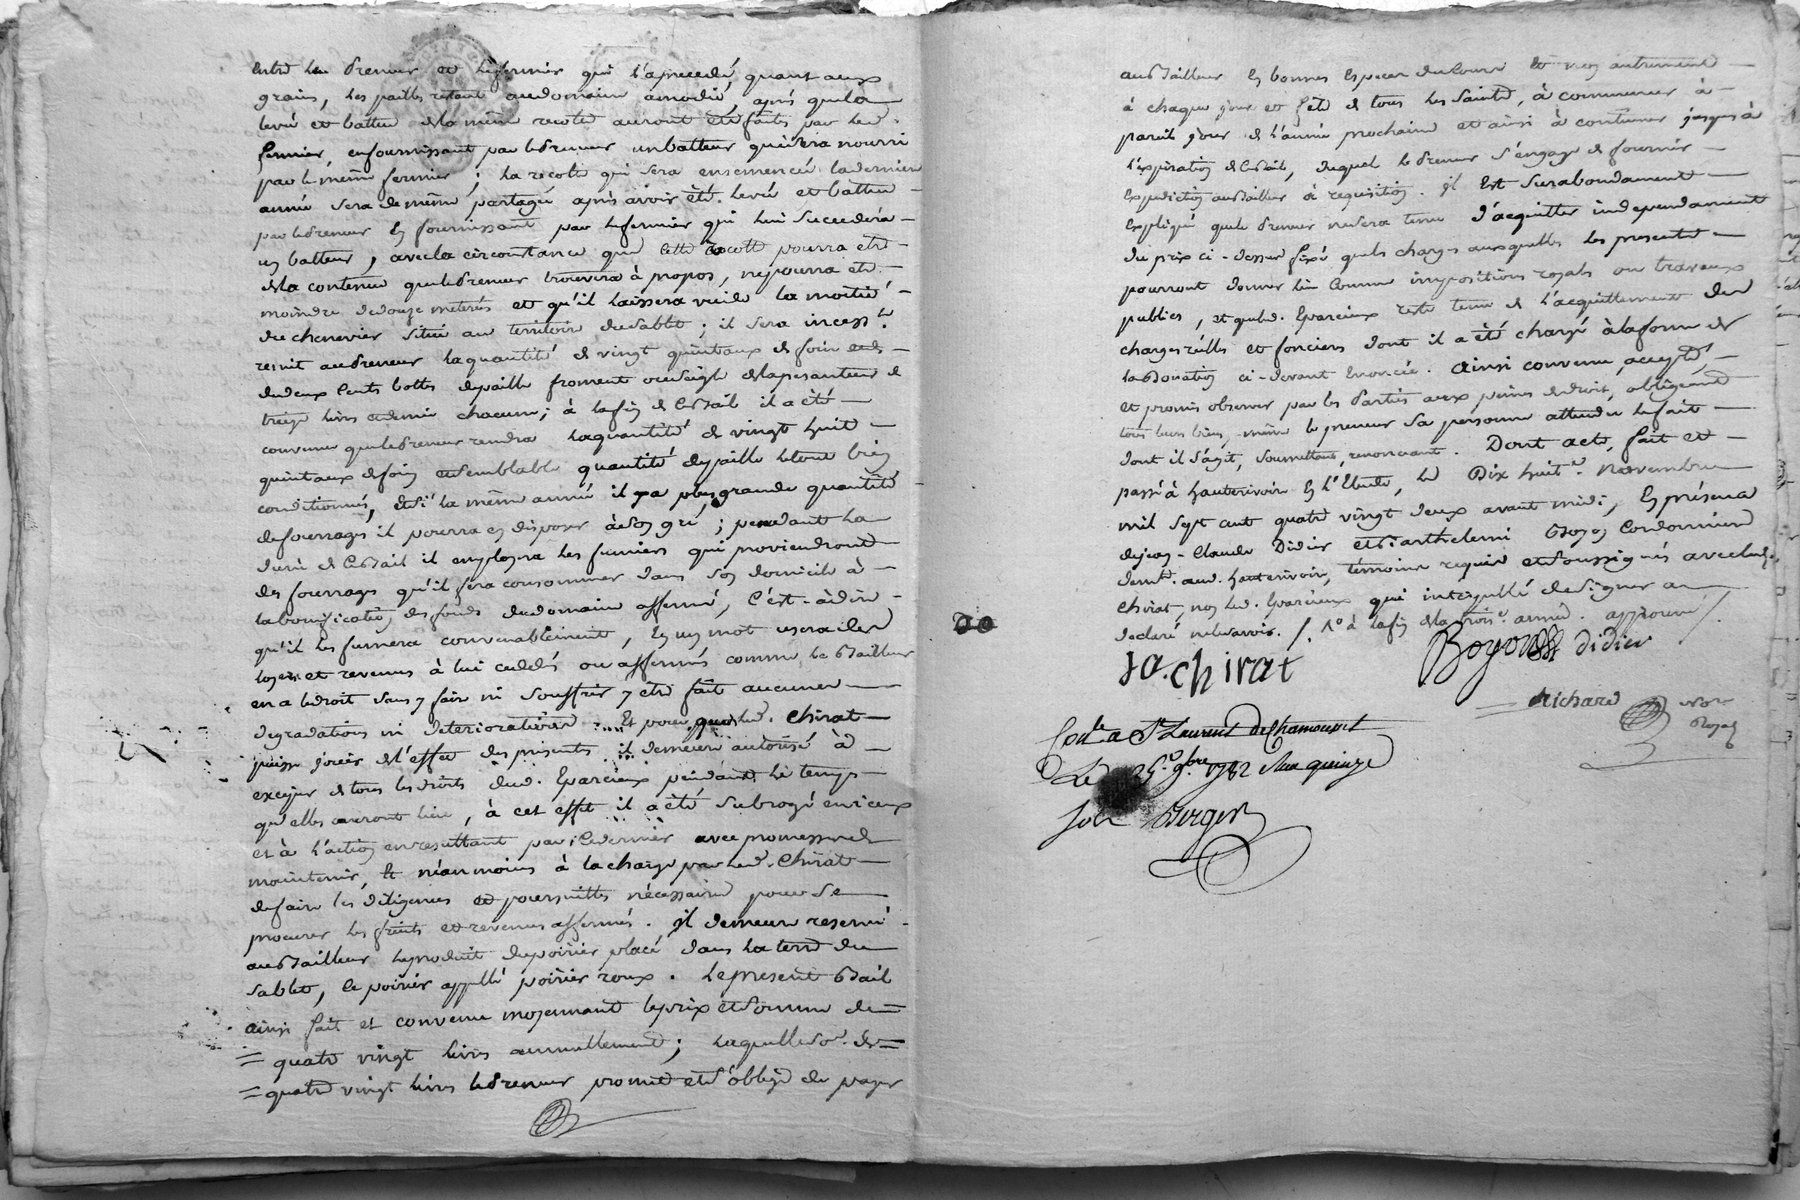 entre led preneur et le fermier qui l'a precedé, quant aux
grains, les pailles restant audomaine amodié, apres quela
levée et batture dela même recolte auront été faites par led.
fermier, enfournissant par lepreneur un batteur qui sera nourri
par le même fermier ; la recolte qui sera ensemencée laderniere
année sera demême partagée après avoir été levée et battue
par lepreneur en fournissant par lefermier qui lui succedera
un batteur, avec la circonstance que cette recolte pourra etre
dela contenue que lepreneur trouvera à propos, ne pourra etre
moindre dedouze meterés et qu'il laissera vuide la moitié
du chenevier situé au territoire dusablet ; il sera incess.t
remit aupreneur laquantité de vingt quintaux de foin et de
deux cents bottes depaille froment ou seigle dela pesanteur de
treize livres et demie chacune ; à lafin de cebail il a été
convenu que lepreneur rendra laquantité de vingt huit
quintaux de foin et semblable quantité depaille le tout bien
conditionnés, et si la même année il y a plus grande quantité
defourrages il pourra en disposer àson gré ; pendant la
durée de cebail il employera les fumiers qui proviendront
des fourrages qu'il fera consommer dans son domicile à
labonification des fonds dudomaine affermé, c'est-àdire
qu'il les fumera convenablement, En un mot usera des
loyers et revenus à lui cedés ou affermés comme le bailleur
en a ledroit sans y faire ni souffrir y etre fait aucunes
degradations ni deteriorations ... Et pour que led. Chirat
puisse jouir de l'effet des presentes il demeure autorisé à
exciper de tous les droits dud. Eparcieux pendant le temps
qu'elles auront lieu, à cet effet il a été subrogé en iceux
et à l'action en resultant par ledernier avec promesse de
maintenir, et néanmoins à la charge par led. Chirat
defaire les diligences et poursuittes nécessaires pour se
procurer les fruits et revenus affermés. il demeure reservé
au bailleur leproduit dupoirier placé dans la terre du
sablet, le poirier appellé poirier roux. Le present bail
ainsi fait et convenu moyennant leprix et somme de
quatre vingt livres annuellement ; laquelle so.e de
quatre vingt livres lepreneur promet et s'oblige de payer
au bailleur En bonnes Especes ducours et non autrement
à chaque jour et fete de tous les saints, à commencer à
pareil jour de l'année prochaine et ainsi à continuer jusqu'à
l'expiration de cebail, duquel le preneur s'engage de fournir
Expedition au bailleur à requisition. il Est surabondament
Expliqué que le preneur ne sera tenu d'acquitter independament
du prix ci-dessus fixé que les charges auxquelles les presentes
pourront donner lieu comme impositions royales ou travaux
publics, et que led. Eparcieux reste tenu de l'acquittement des
charges réelles et foncieres dont il a été chargé à la forme de
la donation ci-devant enoncée. Ainsi convenu, accepté
et promis observer par les Parties aux peines de droit, obligeant
tous leurs biens, même le preneur sa personne attendu le fait
dont il s'agit, soumettant, renonçant. Dont acte, fait et
passé à hauterivoire En l'Etude, le Dix huit.e novembre
mil sept cent quatre vingt deux avant midi, En présence
dejean-Claude Didier et Barthelemi Boyon Cordonniers
dem.t aud. hauterivoire, témoins requis et soussignés avec led.
Chirat, non led. Eparcieux qui interpellé de signer a
declaré ne le savoir. /. 1.º à lafin dela trois.e année. approuvé /.
Ja. chirat
Boyon didier
Richard
not.re
Royal
Con.lé a St Laurent de Chamousset
Le 25. 9.bre 1782 Recu quinze
sols Berger